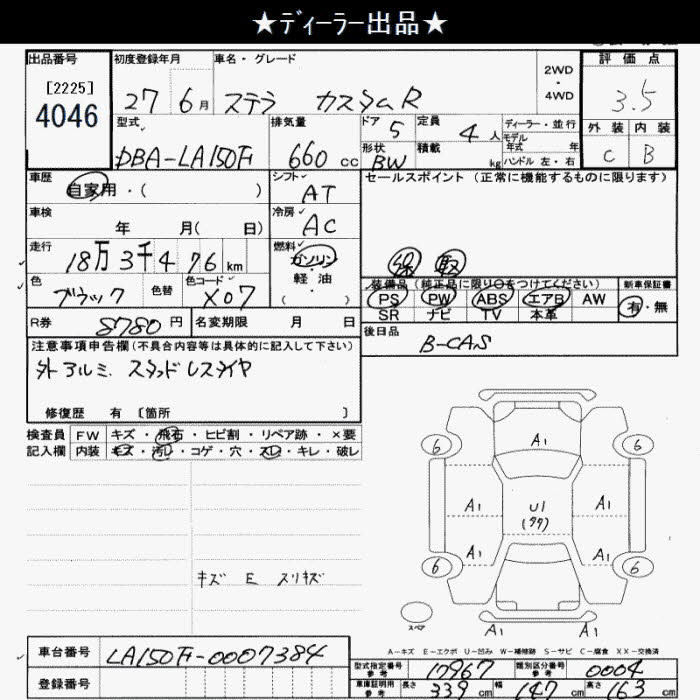 ★ﾃﾞｨｰﾗｰ出品★
出品番号
[2225]
4046
初度登録年月
27 6月
車名・グレード
ステラ カスタムR
2WD
・
4WD
評価点
3.5
外装 内装
C B
型式
DBA-LA150F
排気量
660 cc
ドア 5
定員 4人
形状 BW
積載 kg
ディーラー・並行
モデル
年式 年
ハンドル 左・右
車歴
自家用・( )
シフト
AT
セールスポイント (正常に機能するものに限ります)
保 軽
車検
年 月( 日)
冷房
AC
走行
18万3千476km
燃料
ガソリン
・
軽・油
( )
色
ブラック
色替
色コード
X07
装備品(純正品に限り○をつけてください)
PS PW ABS エアB AW
SR ナビ TV 本革
新車保証書
有・無
R券 8780円
名変期限 月 日
後日品
B-CAS
注意事項申告欄(不具合内容等は具体的に記入して下さい)
外アルミ スタッドレスタイヤ
修復歴 有 〔箇所 〕
検査員
記入欄
FW キズ・飛石・ヒビ割・リペア跡・×要
内装 キズ・汚レ・コゲ・穴・スレ・キレ・破レ
キズ E スリキズ
6 6
A1
A1 A1
U1
(タタ)
A1 A1
6 6
スペア
A1 A1
A-キズ E-エクボ U-凹み W-補修跡 S-サビ C-腐食 XX-交換済
車台番号
LA150F-0007384
登録番号
型式指定番号
参考
17967
類別区分番号
参考
0004
車庫証明用
参考
長さ 339cm 幅 147cm 高さ 163cm